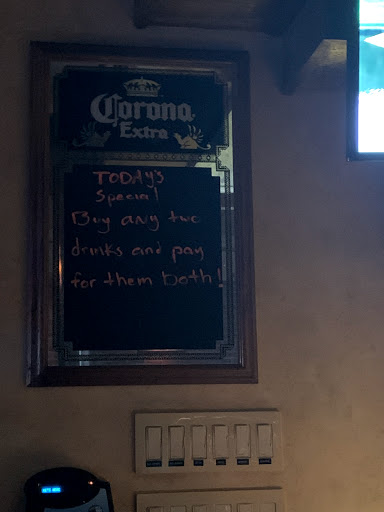 Corona
Extra
TODAY'S
Special
Buy any two
drinks and pay
for them both!